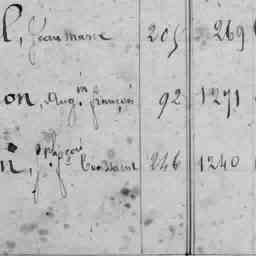 l, Jean Marie 205 269
on, Aug.in françois 92 1271
n, françois Toussaint 246 1240